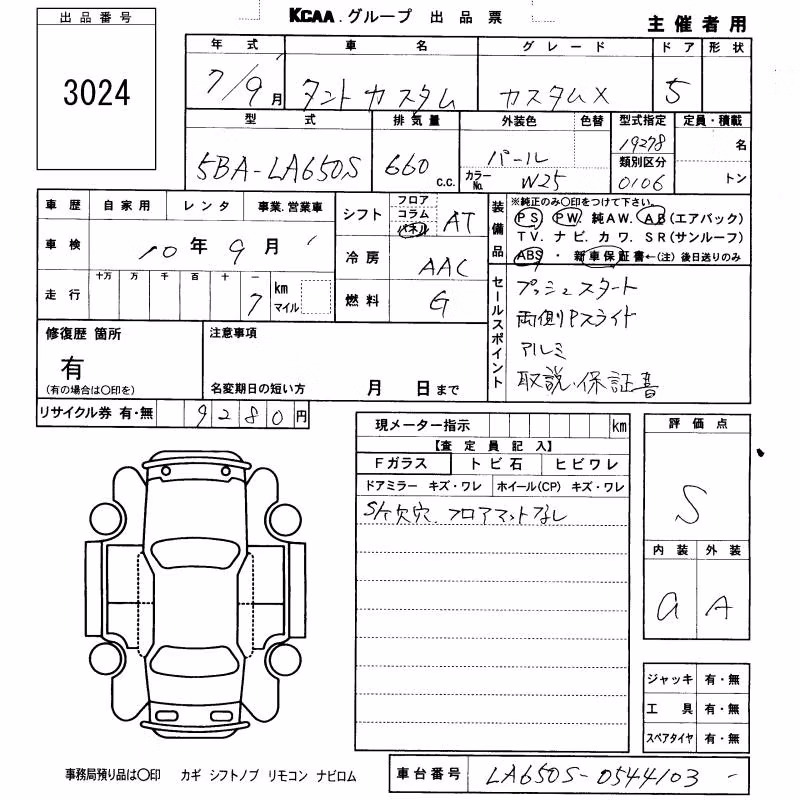 出品番号
3024
KCAA.グループ 出品票
主催者用
年式 車名 グレード ドア 形状
7/9月 タントカスタム カスタムX 5
型式 排気量 外装色 色替 型式指定 定員・積載
5BA-LA650S 660 c.c. パール 19278 名
カラーNo. W25 類別区分 0106 トン
車歴 自家用 レンタ 事業.営業車
車検 10年9月
走行 十万 万 千 百 十 一 7 km マイル
シフト フロア コラム パネル AT
冷房 AAC
燃料 G
装備品
※純正のみ○印をつけて下さい。
PS PW 純AW. AB(エアバック)
TV. ナビ. カワ. SR(サンルーフ)
ABS・新車保証書←(注)後日送りのみ
セールスポイント
プッシュスタート
両側Pスライド
アルミ
取説.保証書
修復歴 箇所
有
(有の場合は○印を)
注意事項
名変期日の短い方 月 日まで
リサイクル券 有・無 9280円
現メーター指示 km
【査定員記入】
Fガラス トビ石 ヒビワレ
ドアミラー キズ・ワレ ホイール(CP) キズ・ワレ
S/T欠穴 フロアマットなし
評価点
S
内装 外装
a A
ジャッキ 有・無
工具 有・無
スペアタイヤ 有・無
事務局預り品は○印 カギ シフトノブ リモコン ナビロム
車台番号 LA650S-0544103